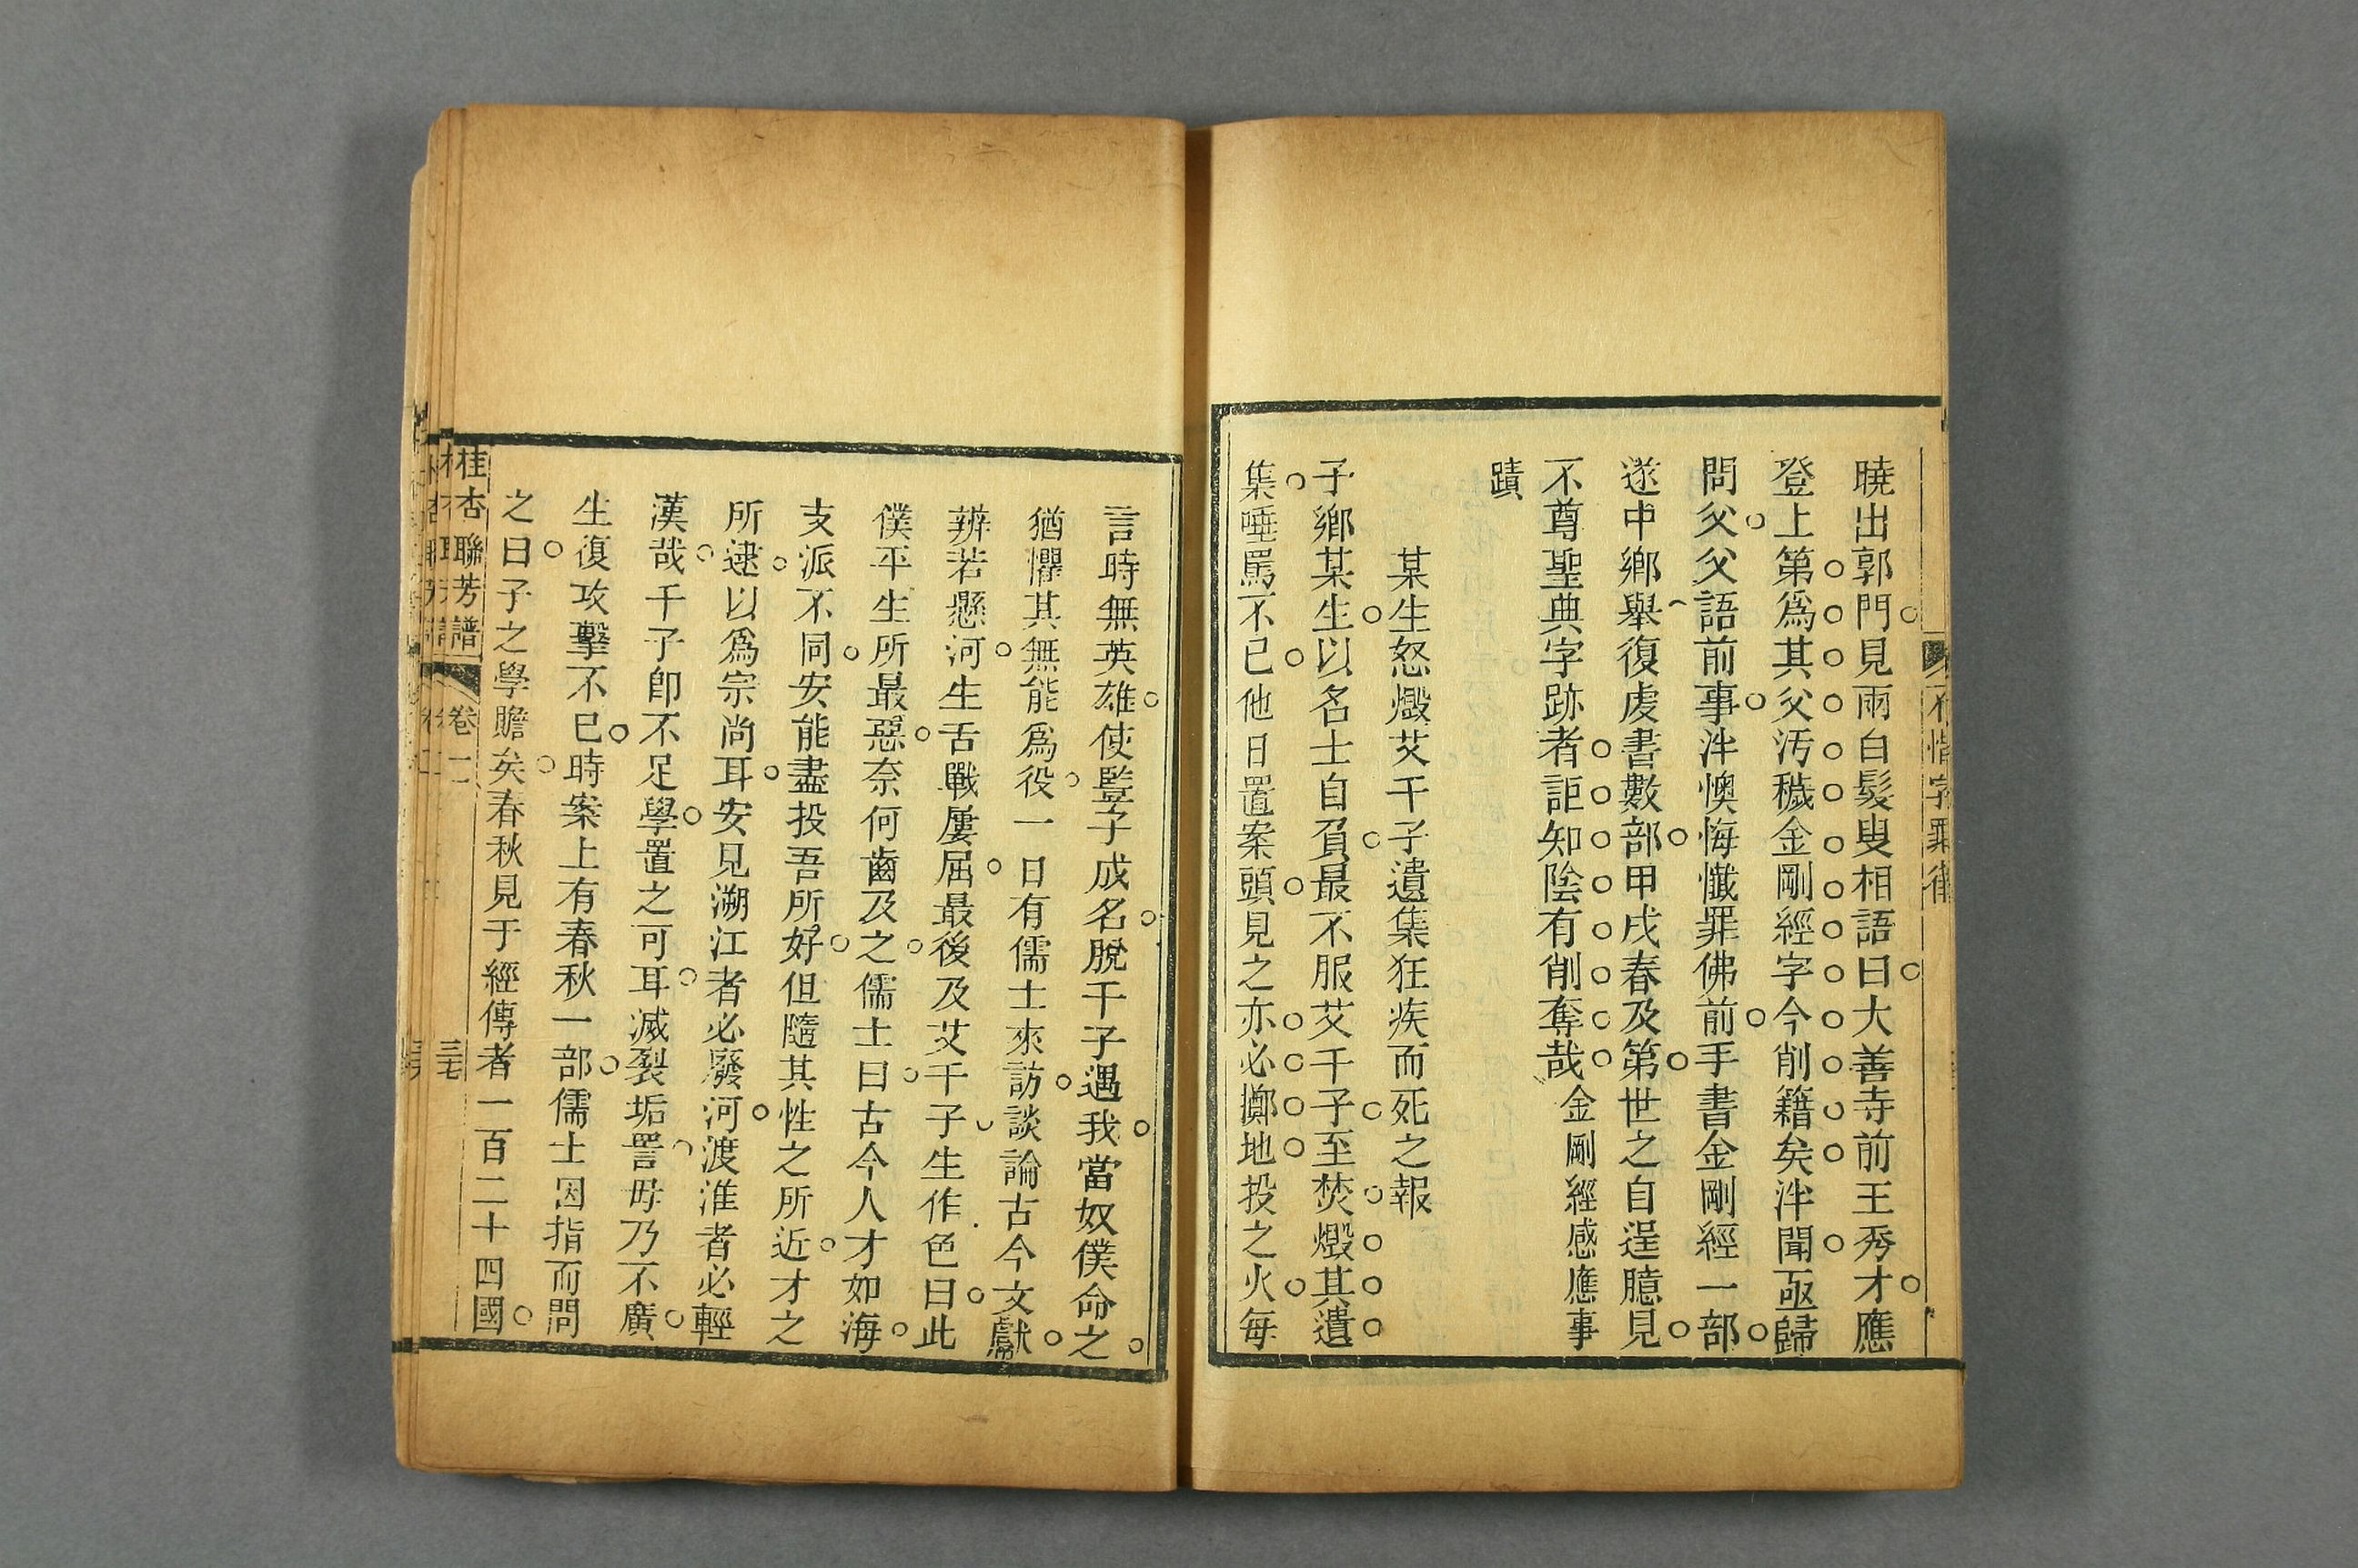 曉出郭門見雨白髮叟相語曰大善寺前王秀才應
登上第爲其父汚穢金剛經字今削籍矣泮聞亟歸
問父父語前事泮懊悔懺罪佛前手書金剛經一部
遂中鄉舉復虔書數部甲戌春及第世之自逞臆見
不尊聖典字跡者詎知陰有削奪哉金剛經感應事
蹟
某生怒燬艾千子遺集狂疾而死之報
子鄉某生以名士自負最不服艾千子至焚燬其遺
集唾罵不已他日置案頭見之亦必擲地投之火每
不惜字罪律
言時無英雄使豎子成名脫千子遇我當奴僕命之
猶懼其無能爲役一日有儒士來訪談論古今文獻
辨若懸河生舌戰屢屈最後及艾千子生作色曰此
僕平生所最惡奈何齒及之儒士曰古今人才如海
支派不同安能盡投吾所好但隨其性之所近才之
所逮以爲宗尚耳安見溯江者必廢河渡淮者必輕
漢哉千子卽不足學置之可耳滅裂垢詈毋乃不廣
生復攻擊不已時案上有春秋一部儒士因指而問
之曰子之學贍矣春秋見于經傳者一百二十四國
桂杏聯芳譜
卷二
三七